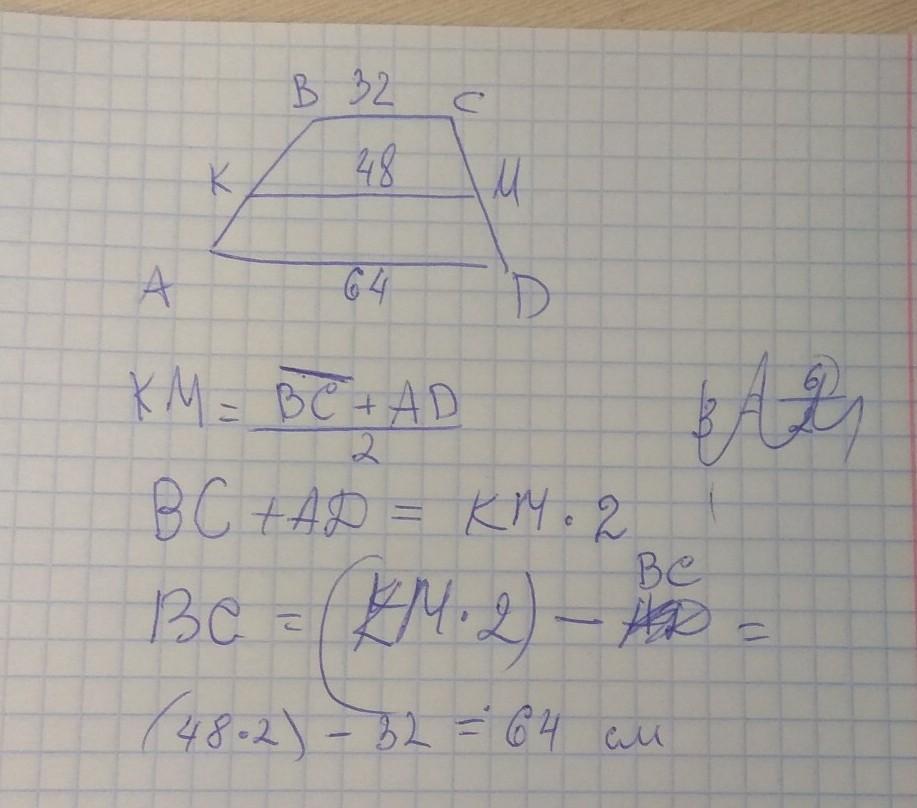 B 32 C
K 48 M
A 64 D
KM = BC + AD
2
BC + AD = KM · 2
BC
BC = (KM · 2) - =
(48 · 2) - 32 = 64 см